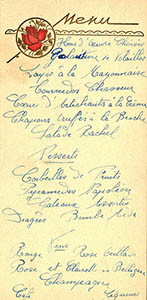 Menu
Hors d'œuvre Choisis
Galantine de Volailles
à la Mayonnaise
Chasseur
Cœurs d'Artichauts à la Crème
Chapons truffés à la Broche
Salade Rachel
Desserts
Corbeilles de Fruits
Pyramides Napoléon
Gateaux Assortis
Dragées Bombe
Vins
Rouge Rosé
Rosé et Clairette de Bellegarde
Champagne
Café Liqueurs